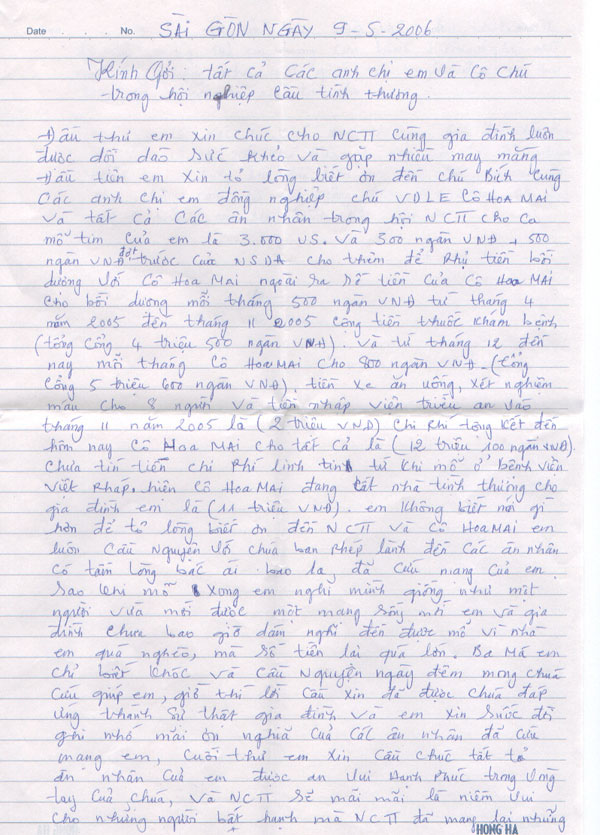 Date No. SÀI GÒN NGÀY 9-5-2006
Kính Gởi: tất cả các anh chị em và cô chú
trong hội nghiệp cầu tình thương.
Đầu thư em xin chúc cho NCTT cùng gia đình luôn
được dồi dào sức khỏe và gặp nhiều may mắng
Đầu tiên em xin tỏ lòng biết ơn đến chú Bích cùng
các anh chị em đồng nghiệp chú VDLE Cô HOA MAI
và tất cả các ân nhân trong hội NCTT cho ca
mổ tim của em là 3.000 US. Và 300 ngàn VNĐ + 500
ngàn VNĐ đợt trước của NSDA cho thêm để phụ tiền bồi
dưỡng với cô Hoa Mai ngoài ra số tiền của cô Hoa MAI
cho bồi dưỡng mỗi tháng 500 ngàn VNĐ từ tháng 4
năm 2005 đến tháng 11 2005 cộng tiền thuốc khám bệnh
(tổng cộng 4 triệu 500 ngàn VNĐ). Và từ tháng 12 đến
nay mỗi tháng cô HOA MAI cho 800 ngàn VNĐ. (tổng
cộng 5 triệu 600 ngàn VNĐ). tiền xe ăn uống, xét nghiệm
máu cho 8 người và tiền nhập viện triều an vào
tháng 11 năm 2005 là (2 triệu VNĐ) chi phí tổng kết đến
hôm nay cô HOA MAI cho tất cả là (12 triệu 100 ngàn VNĐ).
chưa tín tiền chi phí linh tinh từ khi mổ ở bệnh viện
việt pháp. hiện cô HOA MAI đang cất nhà tình thương cho
gia đình em là (11 triệu VNĐ). em không biết nói gì
hơn để tỏ lòng biết ơn đến NCTT và cô HOA MAI em
luôn cầu nguyện với chúa ban phép lành đến các ân nhân
có tấm lòng bác ái bao la đã cứu mạng của em
sao khi mổ xong em nghĩ mình giống như một
người vừa mới được một mạng sống mới em và gia
đình chưa bao giờ dám nghĩ đến được mổ vì nhà
em quá nghèo, mà số tiền lại quá lớn. Ba Má em
chỉ biết khóc và cầu nguyện ngày đêm mong chúa
cứu giúp em, giờ thì lời cầu xin đã được chúa đáp
ứng thành sự thật gia đình và em xin suốc đời
ghi nhớ mãi ơn nghĩa của các ân nhân đã cứu
mạng em, cuối thư em xin cầu chúc tất
ân nhân của em được an vui hạnh phúc trong vòng
tay của chúa, và NCTT sẽ mãi mãi là niềm vui
cho những người bất hạnh mà NCTT đã mang lại những
HONG HA